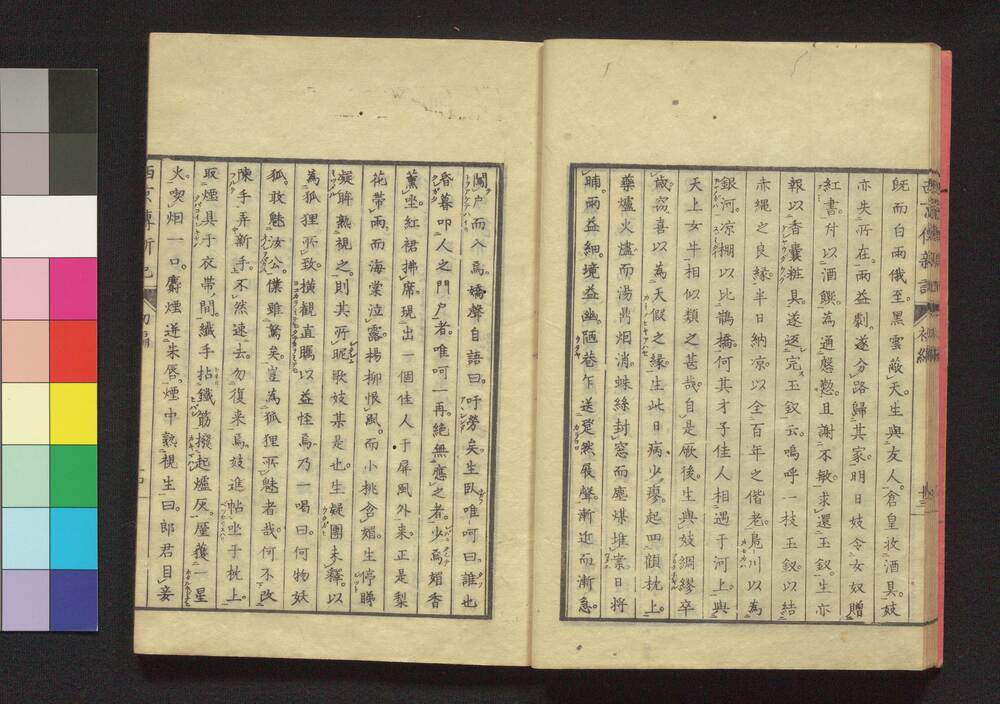 既而白雨俄至。黑雲蔽天。生與友人。倉皇收酒具。妓
亦失所在。雨益劇。遂分路歸其家。明日妓令女奴贈
紅書。付以酒饌。為通慇懃。且謝不敏。求還玉釵。生亦
報以香囊粧具。遂返完玉釵云。嗚呼一枝玉釵。以結
赤繩之良緣。半日納凉。以全百年之偕老。鳧川以為
銀河。凉棚以比鵲橋。何其才子佳人相遇于河上。與
天上女牛相似類之甚哉。自是厥後。生與妓綢繆卒
歲。窃喜以為天假之緣。生此日病少瘳。起四顧枕上。
藥爐火燼。而湯鼎烟消。蛛絲封窓。而塵煤堆案。日將
晡。雨益細。境益幽。陋巷乍送跫然屐聲。漸近而漸急。
闖戶而入焉。嬌聲自語曰。吁勞矣。生臥唯呵曰。誰也
昏暮叩人之門戶者。唯呵一再。絕無應之者。少焉媚香
薰坐。紅裙拂席。現出一個佳人于屏風外来。正是梨
花帶雨。而海棠泣露。楊柳恨風。而小桃含媚。生停睇
凝眸熟視之。則其所昵歌妓某是也。生疑團未釋。以
為狐狸所致。橫觀直矚。以益怪焉。乃一喝曰。何物妖
狐。敢魅汝公。僕雖駑矣。豈為狐狸所魅者哉。何不改
陳手弄新手。不然速去。勿復来焉。妓進帖坐于枕上。
取煙具于衣帶間。纖手拈鐵筋撥起爐灰。僅獲一星
火。喫烟一口。麝煙迸朱唇。煙中熟視生曰。郎君目妾
西京傳新記 初編